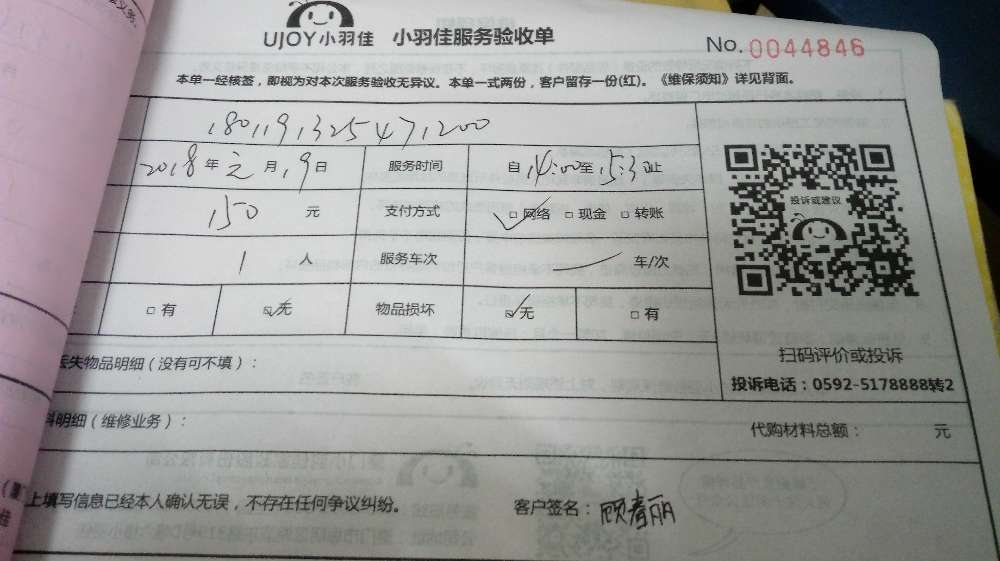 UJOY小羽佳 小羽佳服务验收单 No. 0044846
本单一经核签，即视为对本次服务验收无异议。本单一式两份，客户留存一份(红)。《维保须知》详见背面。
180119132547,200
2018年元月19日 服务时间 自14:00至15:30止
150 元 支付方式 □网络 □现金 □转账
投诉或建议
1 人 服务车次 车/次
□有 ☑无 物品损坏 ☑无 □有
扫码评价或投诉
丢失物品明细(没有可不填)：
投诉电话：0592-5178888转2
料明细(维修业务)： 代购材料总额： 元
上填写信息已经本人确认无误，不存在任何争议纠纷。 客户签名：顾春丽